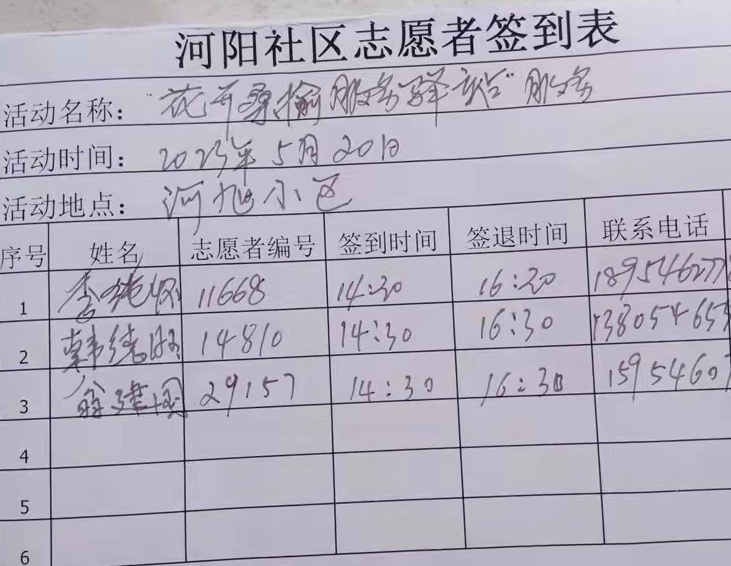 河阳社区志愿者签到表
活动名称："花开桑榆服务驿站"服务
活动时间：2023年5月20日
活动地点：河旭小区
序号 姓名 志愿者编号 签到时间 签退时间 联系电话
1 李纯怀 11668 14:30 16:30 189546277
2 韩绪 14810 14:30 16:30 138054655
3 翁建国 29157 14:30 16:30 15954607
4
5
6